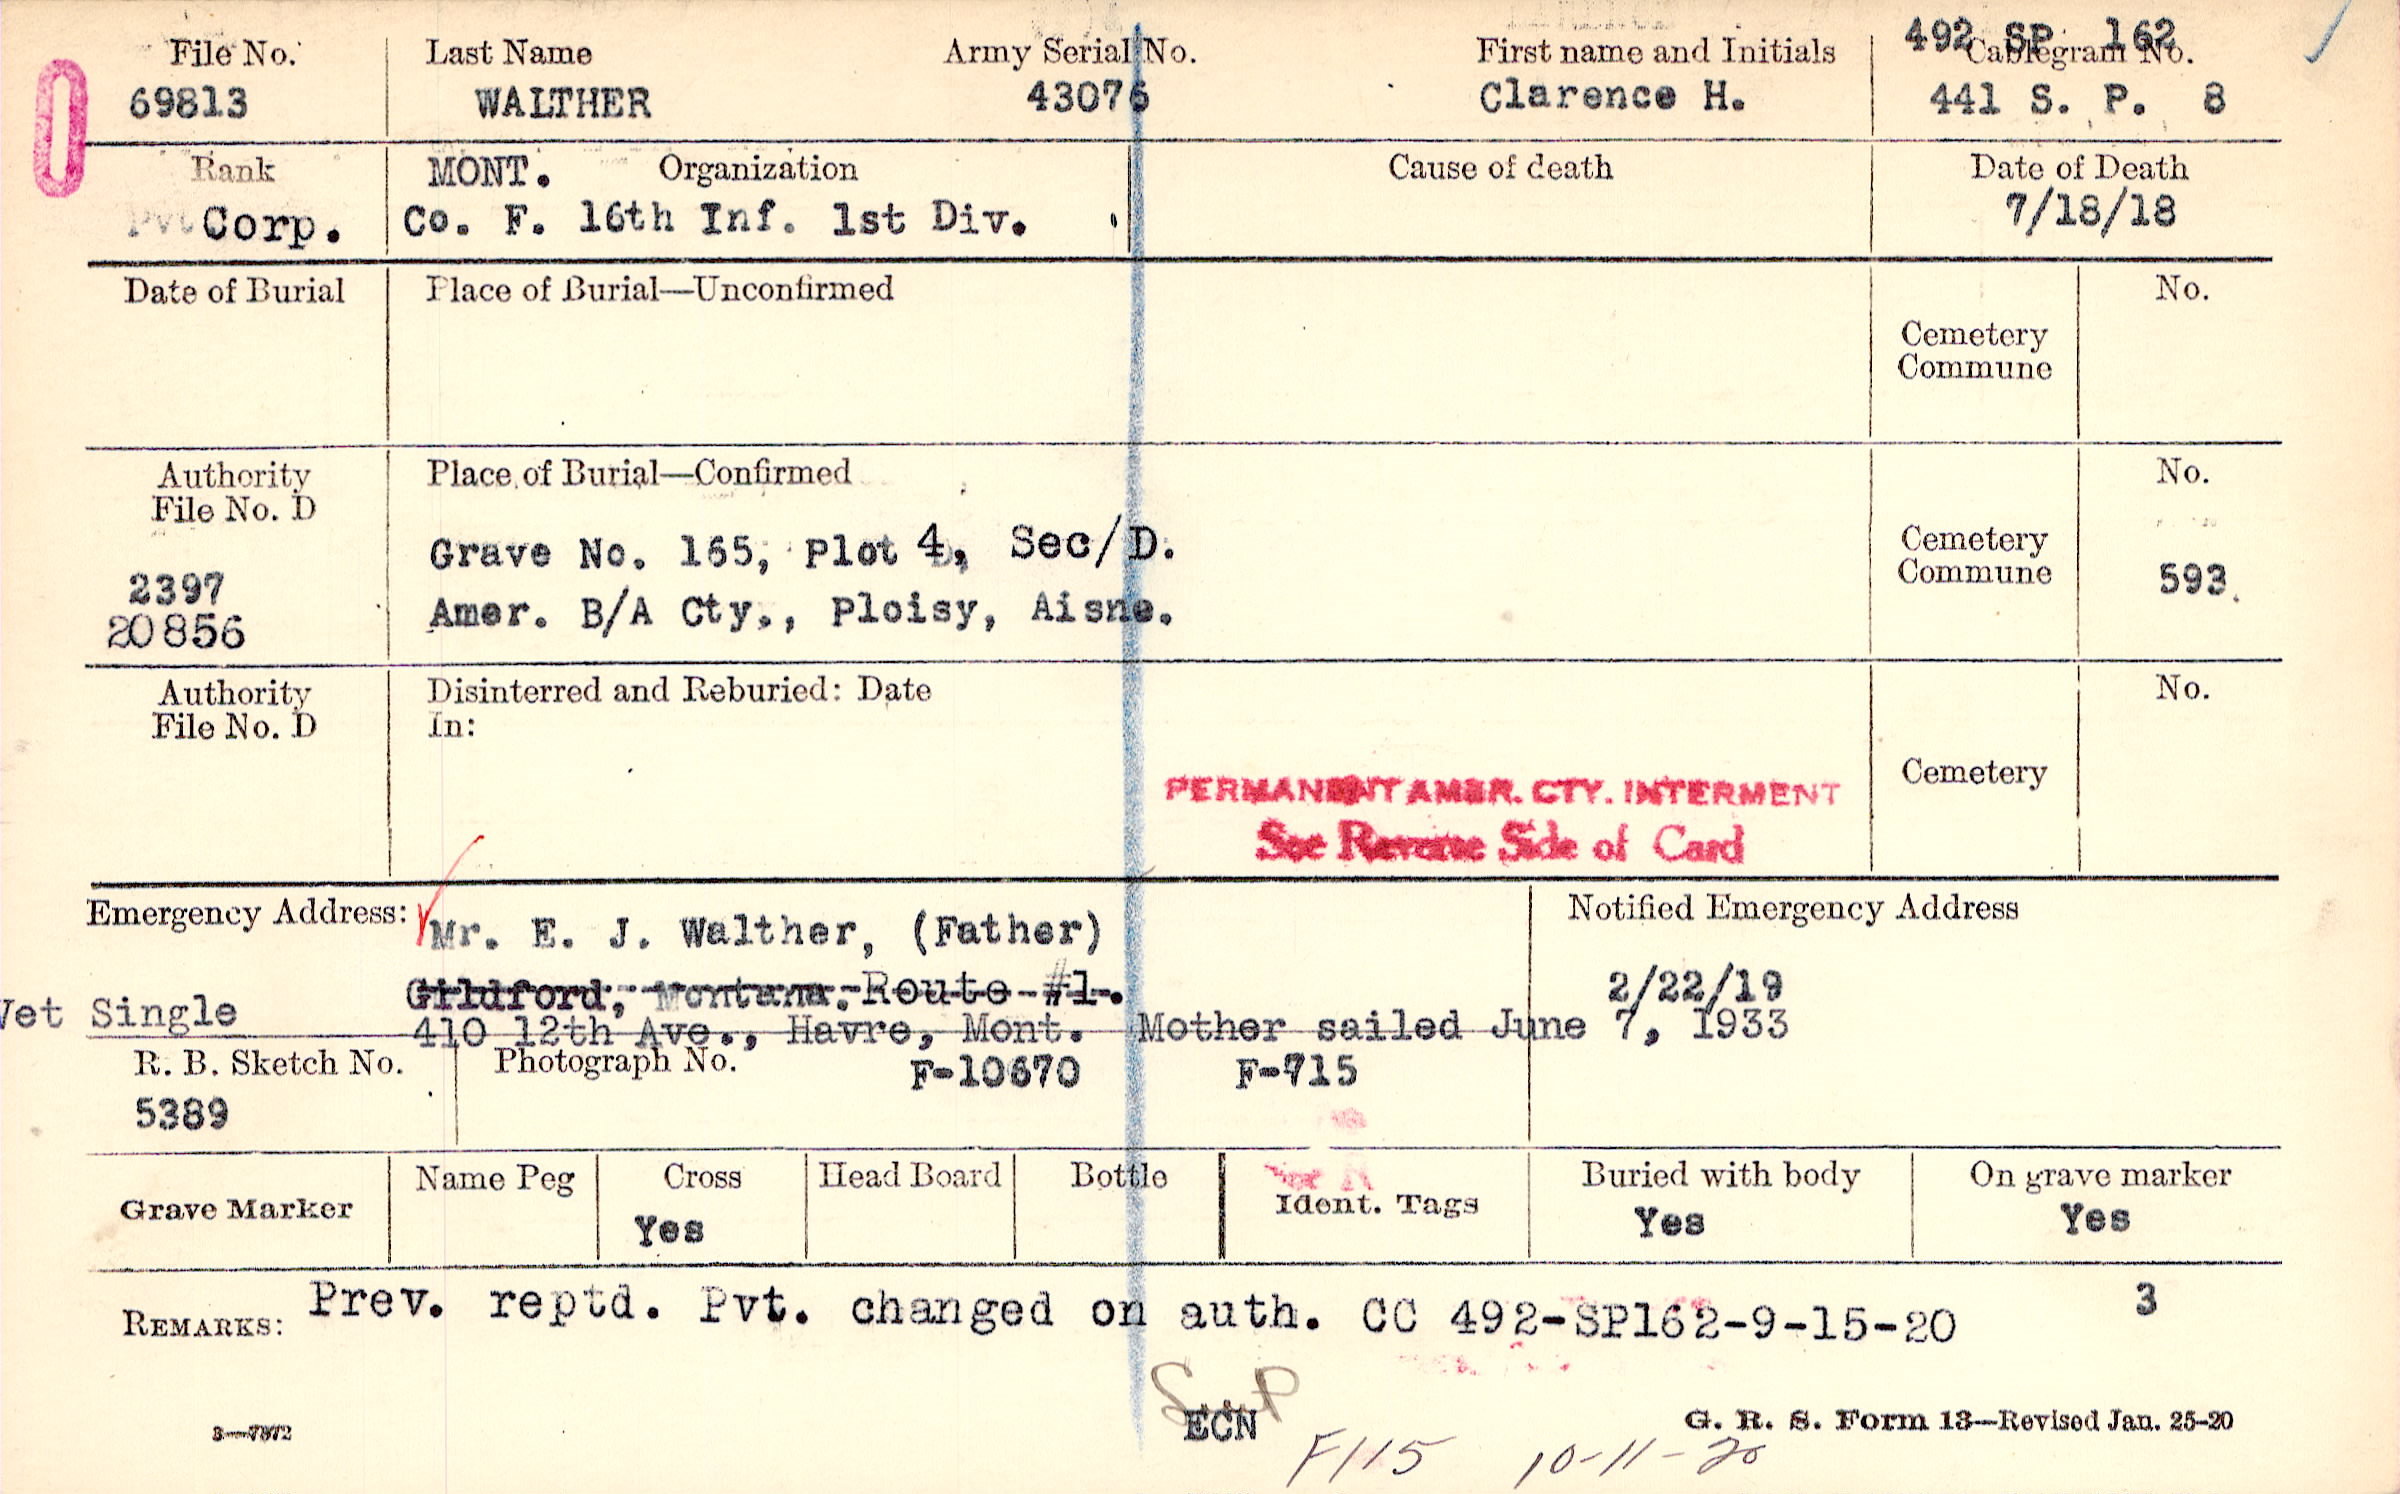 File No. Last Name Army Serial No. First name and Initials 492 SP 162 Cablegram No.
69813 WALTHER 43076 Clarence H. 441 S. P. 8
Rank MONT. Organization Cause of death Date of Death
Pvt Corp. Co. F. 16th Inf. 1st Div. 7/18/18
Date of Burial Place of Burial—Unconfirmed No.
Cemetery
Commune
Authority Place of Burial—Confirmed No.
File No. D
Grave No. 165, Plot 4, Sec/D. Cemetery
2397 Commune 593
20856 Amer. B/A Cty., Ploisy, Aisne.
Authority Disinterred and Reburied: Date No.
File No. D In:
Cemetery
PERMANENT AMER. CTY. INTERMENT
See Reverse Side of Card
Emergency Address: Mr. E. J. Walther, (Father) Notified Emergency Address
Gildford, Montana. Route #1. 2/22/19
Vet Single 410 12th Ave., Havre, Mont. Mother sailed June 7, 1933
R. B. Sketch No. Photograph No. F-10670 F-715
5389
Grave Marker Name Peg Cross Head Board Bottle Ident. Tags Buried with body On grave marker
Yes Yes Yes
REMARKS: Prev. reptd. Pvt. changed on auth. CC 492-SP162-9-15-20 3
ECN
3—7872 G. R. S. Form 13—Revised Jan. 25-20
F115 10-11-20